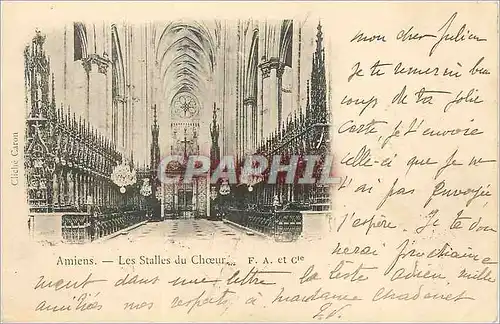 mon cher Julien
Je te remercie beau
coup de ta jolie
carte, je t'envoie
celle-ci que je ne
t'ai pas envoyée
j'espère. Je te don
nerai prochaine
ment dans une lettre la liste adieu mille
amitiés mes respects à madame
Cliché Caron
CPArama.com
Amiens. — Les Stalles du Chœur... F. A. et Cie